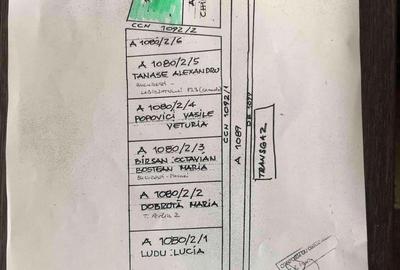 A
CCN 1092/2
A 1080/2/6
A 1080/2/5
TANASE ALEXANDRU
A 1080/2/4
POPOVICI VASILE
VETURIA
A 1080/2/3
BÎRSAN OCTAVIAN
BOSTEAN MARIA
A 1080/2/2
DOBROTĂ MARIA
A 1080/2/1
LUDU LUCIA
CCN 1092/1
A 1089
DE 1077
TRANSGAZ